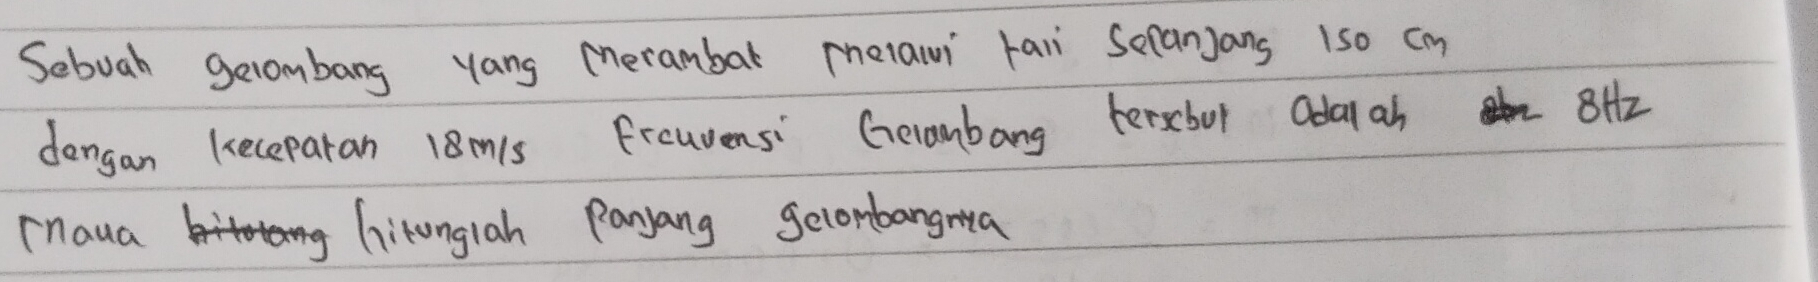 Sebuah gelombang yang merambat melalui tali sepanjang 150 cm
dengan kecepatan 18 m/s frekuensi Gelombang tersebut adalah 8Hz
maka hitunglah panjang gelombangnya